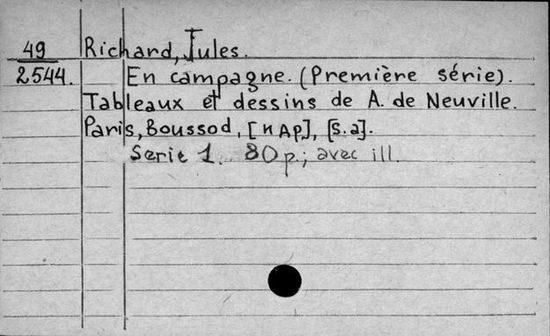 49 Richard, Jules.
2544. En campagne. (Première série).
Tableaux et dessins de A. de Neuville.
Paris, Boussod, [и др], [s.a].
Serie 1. 80 p.; avec ill.